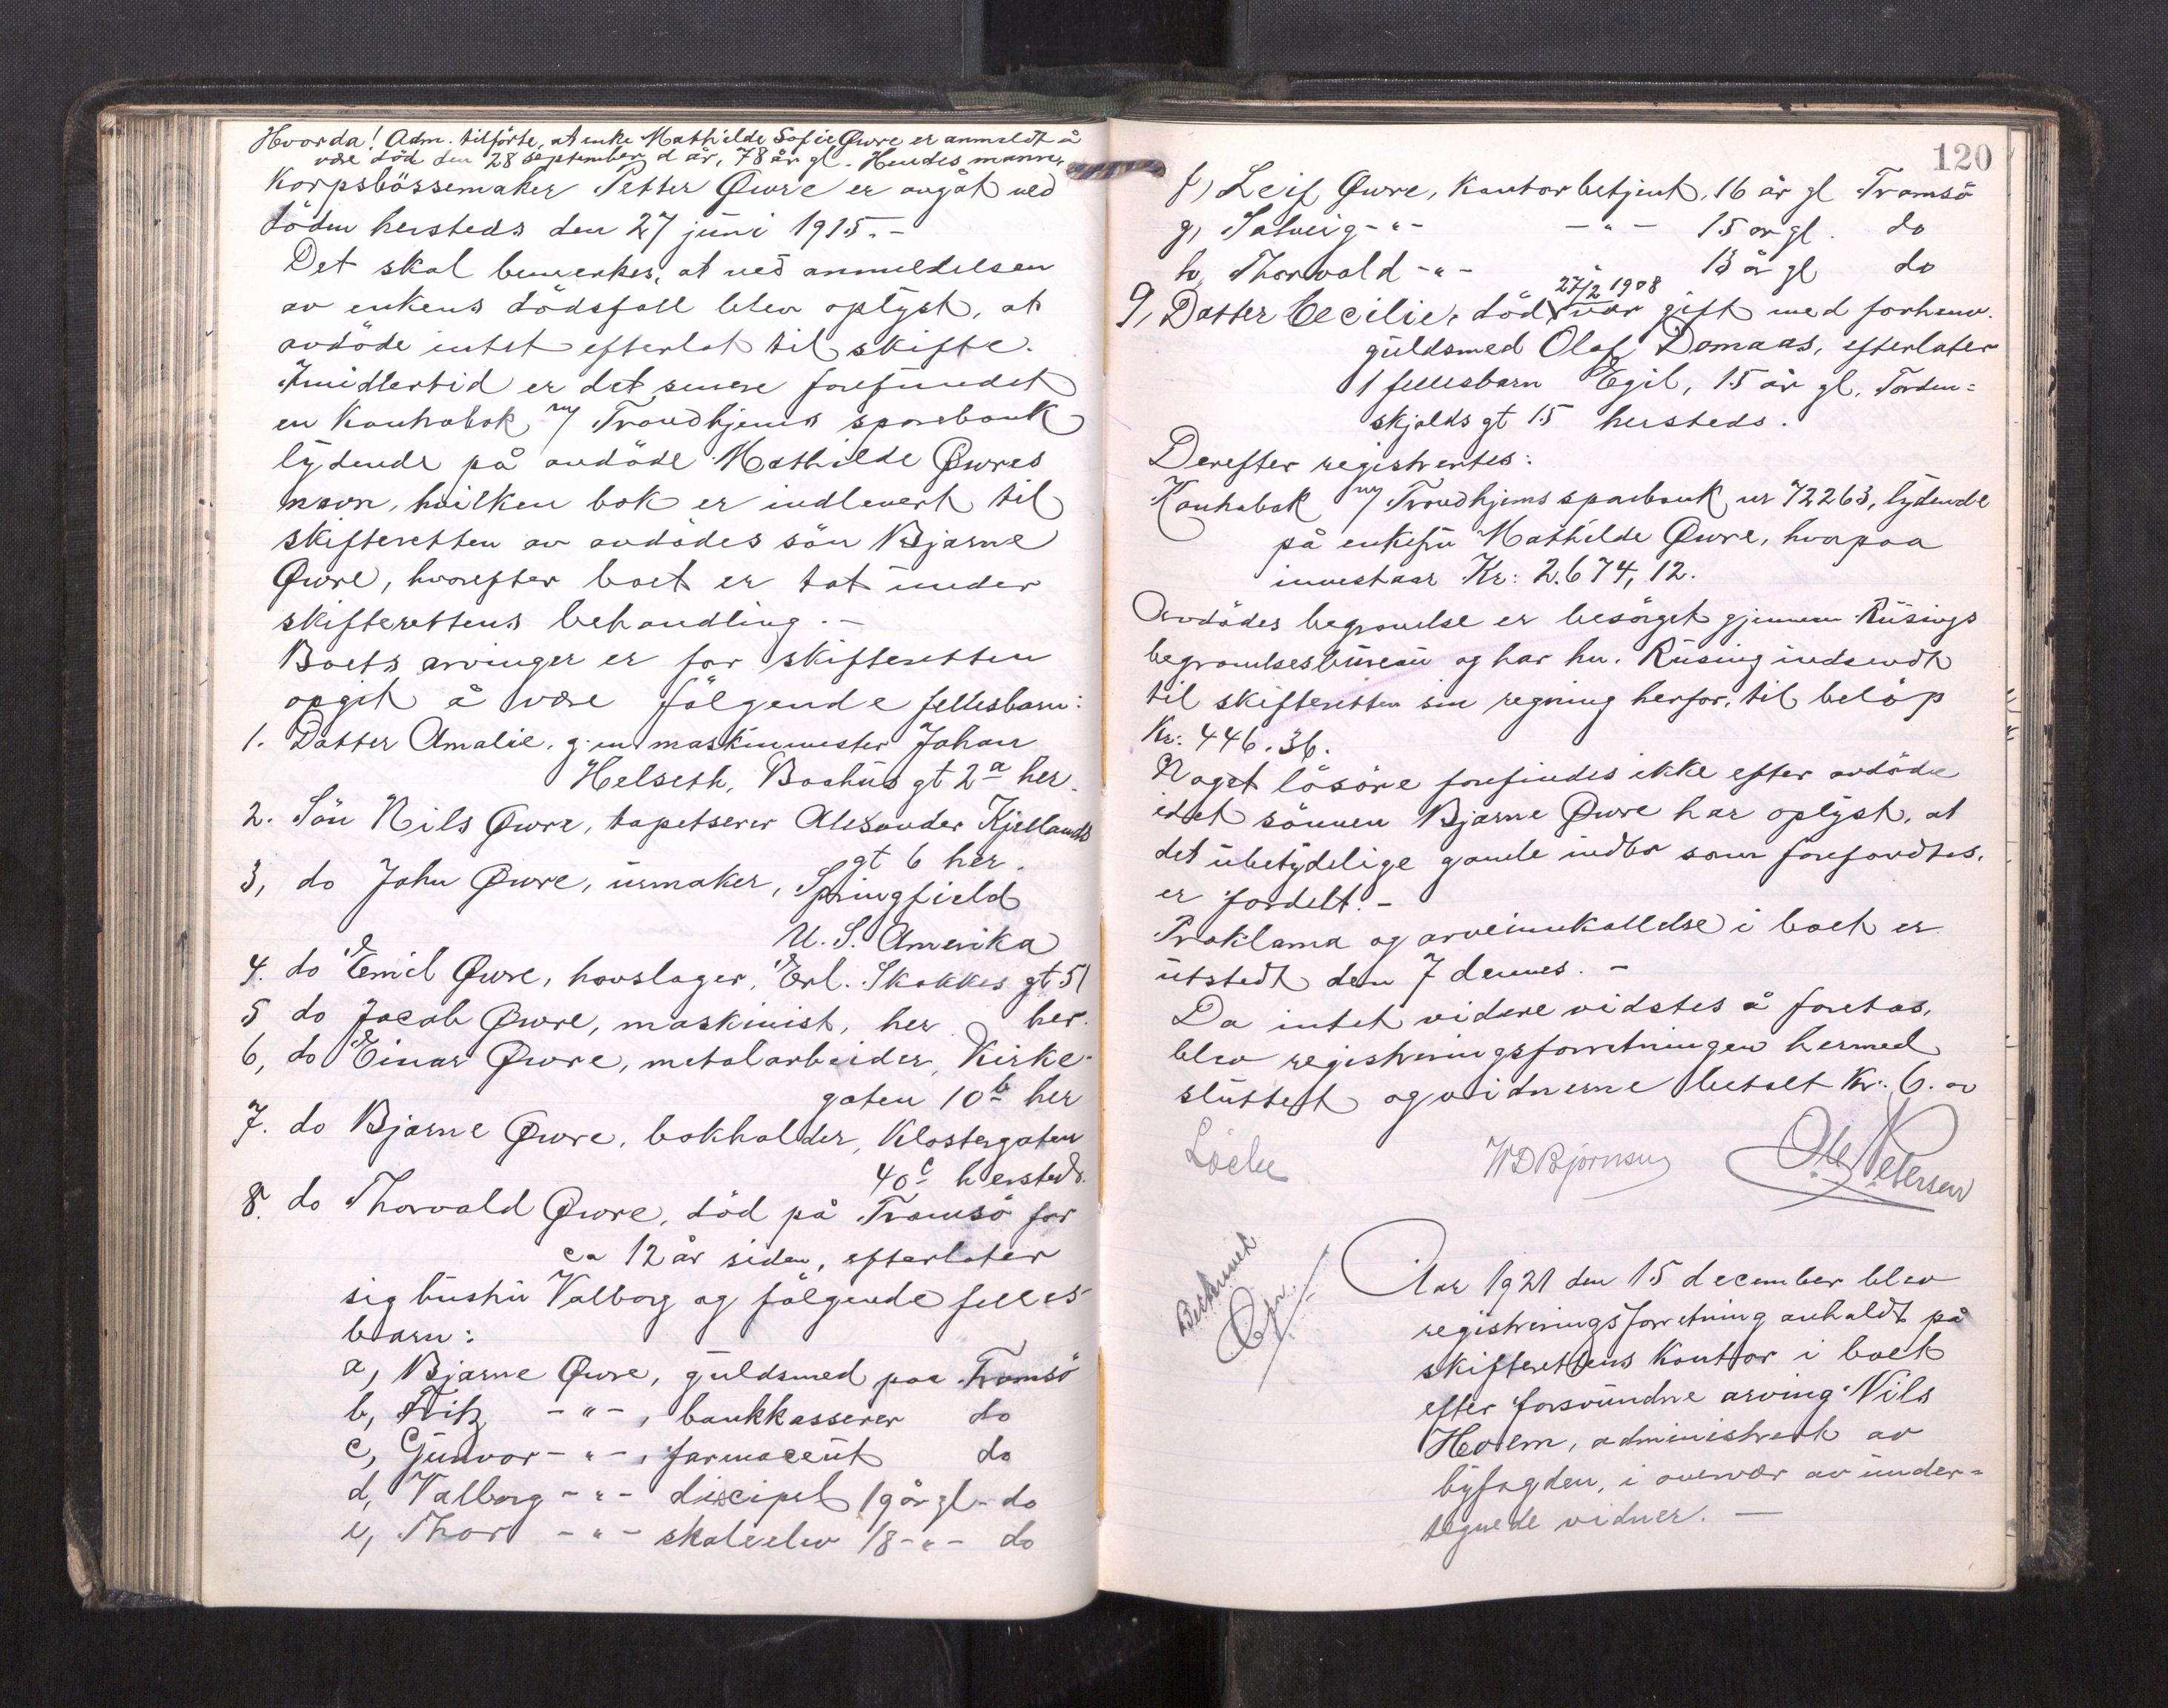 Hvorda! Adm. tilførte, at enke Mathilde Sofie Øwre er anmeldt å
være död den 28 september d år, 78 år gl. Hendes mann,
Korpsbössemaker Petter Øwre er avgåt ved
döden hersteds den 27 juni 1915. -
Det skal bemerkes, at ved anmeldelsen
av enkens dödsfall blev oplyst, at
avdöde intet efterlot til skifte.
Imidlertid er det senere forefundet
en Kontrabok m/ Trondhjems sparebank
lydende på avdöde Mathilde Øwres
navn, hvilken bok er indlevert til
skifteretten av avdödes sön Bjarne
Øwre, hvorefter boet er tat under
skifterettens behandling. -
Boets arvinger er for skifteretten
opgit å være fölgende fellesbarn:
1. Datter Amalie, g. m. maskinmester Johan
Helseth, Baahus gt 2a her.
2. Sön Nils Øwre, tapetserer Alexander Kjellands
gt 6 her.
3, do John Øwre, urmaker, Springfield
U. S. Amerika
4. do Emil Øwre, hovslager, Erl. Skakkes gt 51
her.
5 do Jacob Øwre, maskinist, her.
6, do Einar Øwre, metalarbeider, Kirke-
gaten 10b her
7. do Bjarne Øwre, bokholder, Klostergaten
40c hersteds.
8. do Thorvald Øwre, död på Tromsö for
ca 12 år siden, efterlater
sig hustru Valborg og fölgende felles-
barn:
a, Bjarne Øwre, guldsmed paa Tromsö
b, Fritz -"-, bankkasserer do
c, Gunvor -"-, farmaceut do
d, Valborg -"- discipel 19 år gl - do
e, Thor -"- skoleelev 18 -"- do
120
f, Leif Øwre, Kontorbetjent, 16 år gl Tromsö
g, Solveig -"- -"- 15 år gl. do
h, Thorvald -"- 13 år gl do
27/2 1908
9, Datter Cecilie, död var gift med forhenv.
guldsmed Olaf Domaas, efterlater
1 fellesbarn Egil, 15 år gl. Torden=
skjolds gt 15 hersteds.
Derefter registrertes:
Kontrabok m/ Trondhjems sparebank nr 72263, lydende
på enkefru Mathilde Øwre, hvorpaa
innestaar Kr: 2.674,12.
Avdödes begravelse er besörget gjennem Rüsings
begravelsesbureau og har hr. Rüsing indsendt
til skifteretten sin regning herfor, til belöp
Kr: 446.36.
Noget lösöre forefindes ikke efter avdöde
idet sönnen Bjarne Øwre har oplyst, at
det ubetydelige gamle indbo som forefandtes,
er fordelt. -
Proklama og arveinnkallelse i boet er
utstedt den 7 dennes. -
Da intet videre vidstes å foretas,
blev registreringsforretningen hermed
sluttet og vidnerne betalt Kr: 6.00
WD Bjørnsen Ole Petersen
Aar 1921 den 15 december blev
registreringsforretning avholdt på
skifterettens Kontor i boet
efter forsvundne arving Nils
Hovem, administrert av
byfogden, i overvær av under=
tegnede vidner. -